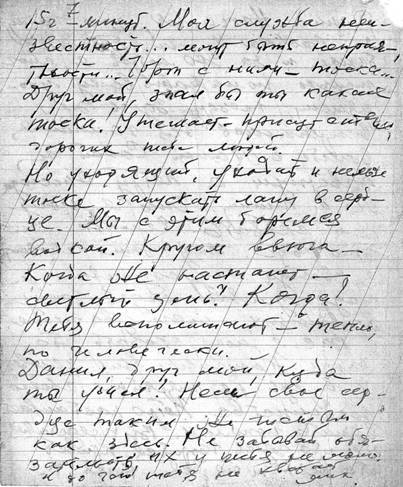 15 г 7 минут. Моя служба неи-
звестность... могут быть неприя-
тности... Чорт с ними – тоска...
Друг мой, знал бы ты какая
тоска. Утешает – присутствие
дорогих тебе людей.
Но уходящий, уходят и нельзя
тоске запускать лапу в серд-
це. Мы с этим боремся
водкой. Кругом вьюга –
Когда же настанет –
светлый день? Когда!
Тебя вспоминают – тепло,
по человечески.
Данил, друг мой, куда
ты ушёл! Неси свое сер-
дце таким же чистым
как здесь. Не забывай обя-
зательств, их у тебя не мало,
и до того тебя не хватает